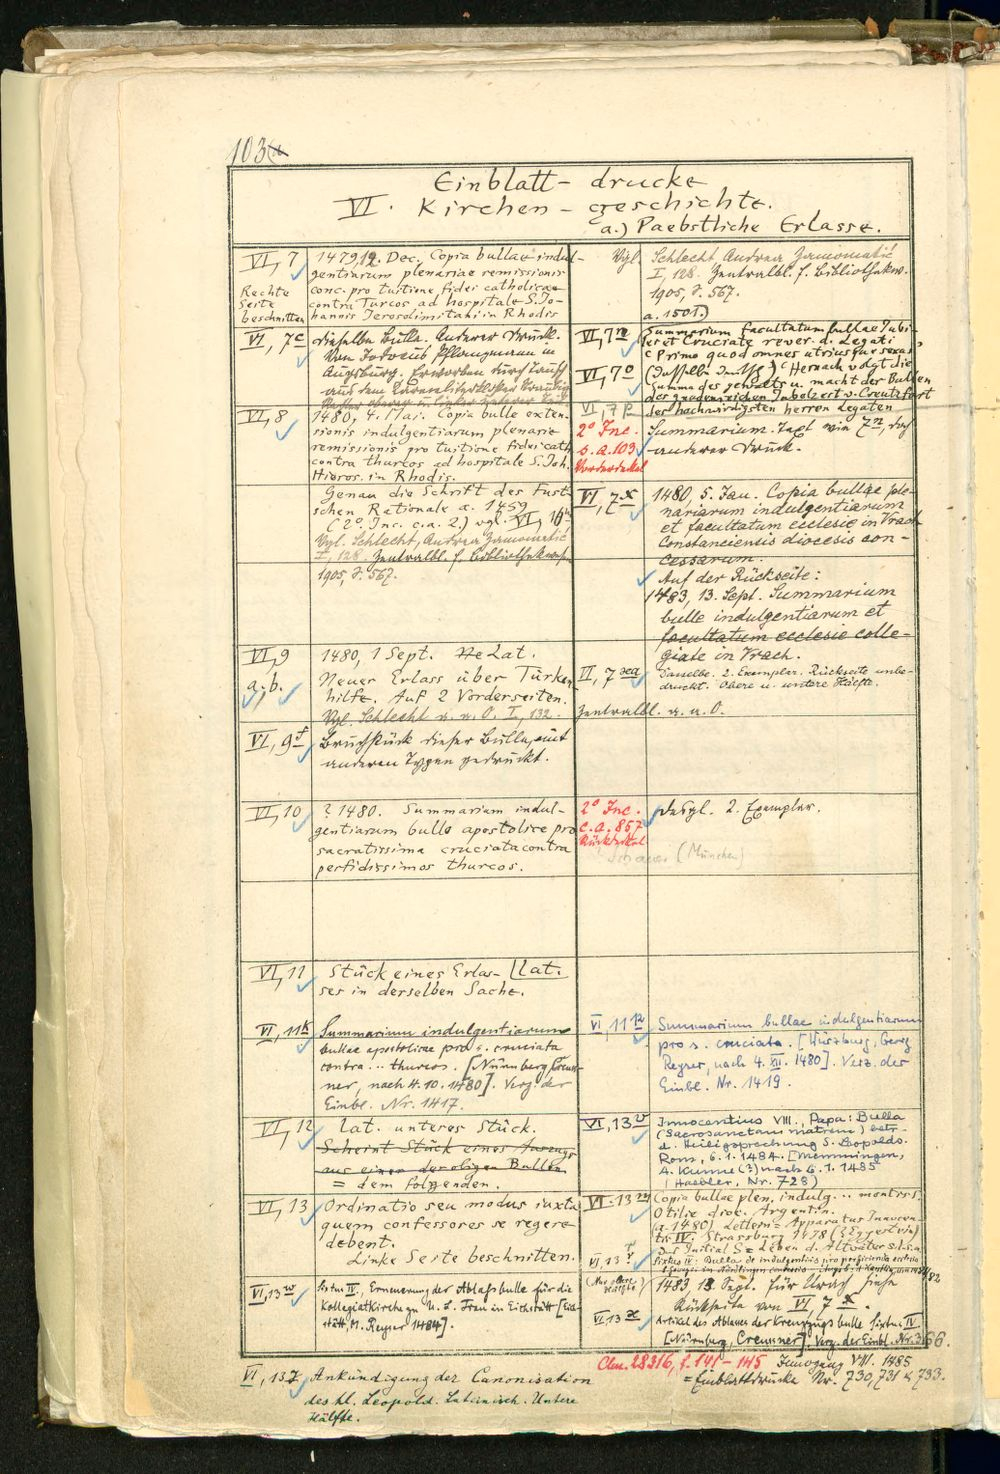 103
Einblatt- drucke
VI. Kirchen - geschichte.
a.) Paebstliche Erlasse.
VI, 7
Rechte
Seite
beschnitten
1479,12. Dec. Copia bullae indul-
gentiarum plenariae remissionis
conc. pro tuitione fidei catholicae
contra Turcos ad hospitale S. Jo-
hannis Jerosolimitani in Rhodis
Vgl. Schlecht Andrea Zamometić
I, 128. Zentralbl. f. Bibliothekw.
1905, S. 567.
a. 1501.)
VI, 7c
dieselbe Bulle. Anderer Druck.
Von Jodocus Pflanzmann in
Augsburg. Erworben durch Tausch
aus dem Karmeliterkloster
VI, 8
1480, 4. Mai. Copia bulle exten-
sionis indulgentiarum plenarie
remissionis pro tuitione fidei cath.
contra thurcos ad hospitale S. Joh.
Hieros. in Rhodis.
Genau die Schrift des Fust-
schen Rationale a. 1459
(2° Inc. c. a. 2.) vgl. VI, 16
Vgl. Schlecht, Andrea Zamometić
I, 128. Zentralbl. f. Bibliothekwes.
1905, S. 567.
VI, 7n
VI, 7o
Summarium facultatum bullae Jubi-
lei et Cruciate rever. d. Legati
(Primo quod omnes utriusque sexus
(Dasselbe Deutsch) (Hernach volgt die
Summa des gewalts u. macht der Bullen
des gnadenreichen Jubelzert v. Creutzfart
der hochwirdigsten herren Legaten
VI, 7p
2° Inc.
s. a. 103
Vorderdeckel
Summarium. Text wie 7n, doch
anderer Druck.
VI, 7x
1480, 5. Jan. Copia bullae ple-
nariarum indulgentiarum
et facultatum ecclesie in Vrach
Constanciensis diocesis con-
cessarum.
Auf der Rückseite:
1483, 13. Sept. Summarium
bulle indulgentiarum et
facultatum ecclesie colle-
giate in Vrach.
VI, 9
a; b.
1480, 1 Sept. Lat.
Neuer Erlass über Türken
hilfe. Auf 2 Vorderseiten.
Vgl. Schlecht a. a. O. I, 132.
VI, 7xa
Dasselbe. 2. Exemplar. Rückseite unbe-
druckt. Obere u. untere Hälfte.
Zentralbl. a. a. O.
VI, 9f
Bruchstück dieser Bulle, mit
anderen Typen gedruckt.
VI, 10
? 1480. Summarium indul-
gentiarum bulle apostolice pro
sacratissima cruciata contra
perfidissimos thurcos.
2° Inc.
c. a. 857
Rückdeckel
Desgl. 2. Exemplar.
(München)
VI, 11
Stück eines Erlas- [Lat.
ses in derselben Sache.
VI, 11k
Summarium indulgentiarum
bullae apostolicae pro s. cruciata
contra .. thurcos. [Nürnberg, Creus-
ner, nach 4. 10. 1480]. Verz. der
Einbl. Nr. 1417.
VI, 11
Summarium bullae indulgentiarum
pro s. cruciata. [Würzburg, Georg
Reyser, nach 4. XII. 1480]. Verz. der
Einbl. Nr. 1419.
VI, 12
Lat. unteres Stück.
Scheint Stück eines Auszugs
aus einer der obigen Bullen
= dem folgenden.
VI, 13v
Innocentius VIII., Papa: Bulla
(Sacrosanctam matrem) betr.
d. Heiligsprechung S. Leopolds.
Rom, 6. 1. 1484. [Memmingen,
A. Kunne (?) nach 6. 1. 1485
(Haebler, Nr. 728)
VI, 13
Ordinatio seu modus iuxta
quem confessores se regere
debent.
Linke Seite beschnitten.
VI. 13
Copia bullae plen. indulg... montis s.
Otilie dioc. Argentin.
(a. 1480) Lettern = Apparatus Innocen-
tii IV. Strassburg 1478 (Eggestein)
Das Initial S = Leben d. Altväter s. l. s. a.
VI, 13
Sixtus IV: Bulla de indulgentiis pro perficienda ecclesia
1483 13. Sept. für Urach siehe
Rückseite von VI, 7x.
VI, 13w
Sixtus IV., Erneuerung der Ablaßbulle für die
Kollegiatkirche zu U. L. Frau in Eichstätt [Eich-
stätt, M. Reyser 1484].
VI, 13x
Artikel des Ablasses der Kreuzzugsbulle Sixtus IV
[Nürnberg, Creussner]. Verz. der Einbl. Nr. 366.
VI, 13z
Ankündigung der Canonisation
des hl. Leopold. Lateinisch. Untere
Hälfte.
Clm. 28316, f. 141 - 145 Innozenz VIII. 1485
= Einblattdrucke Nr. 730, 731 u. 733.